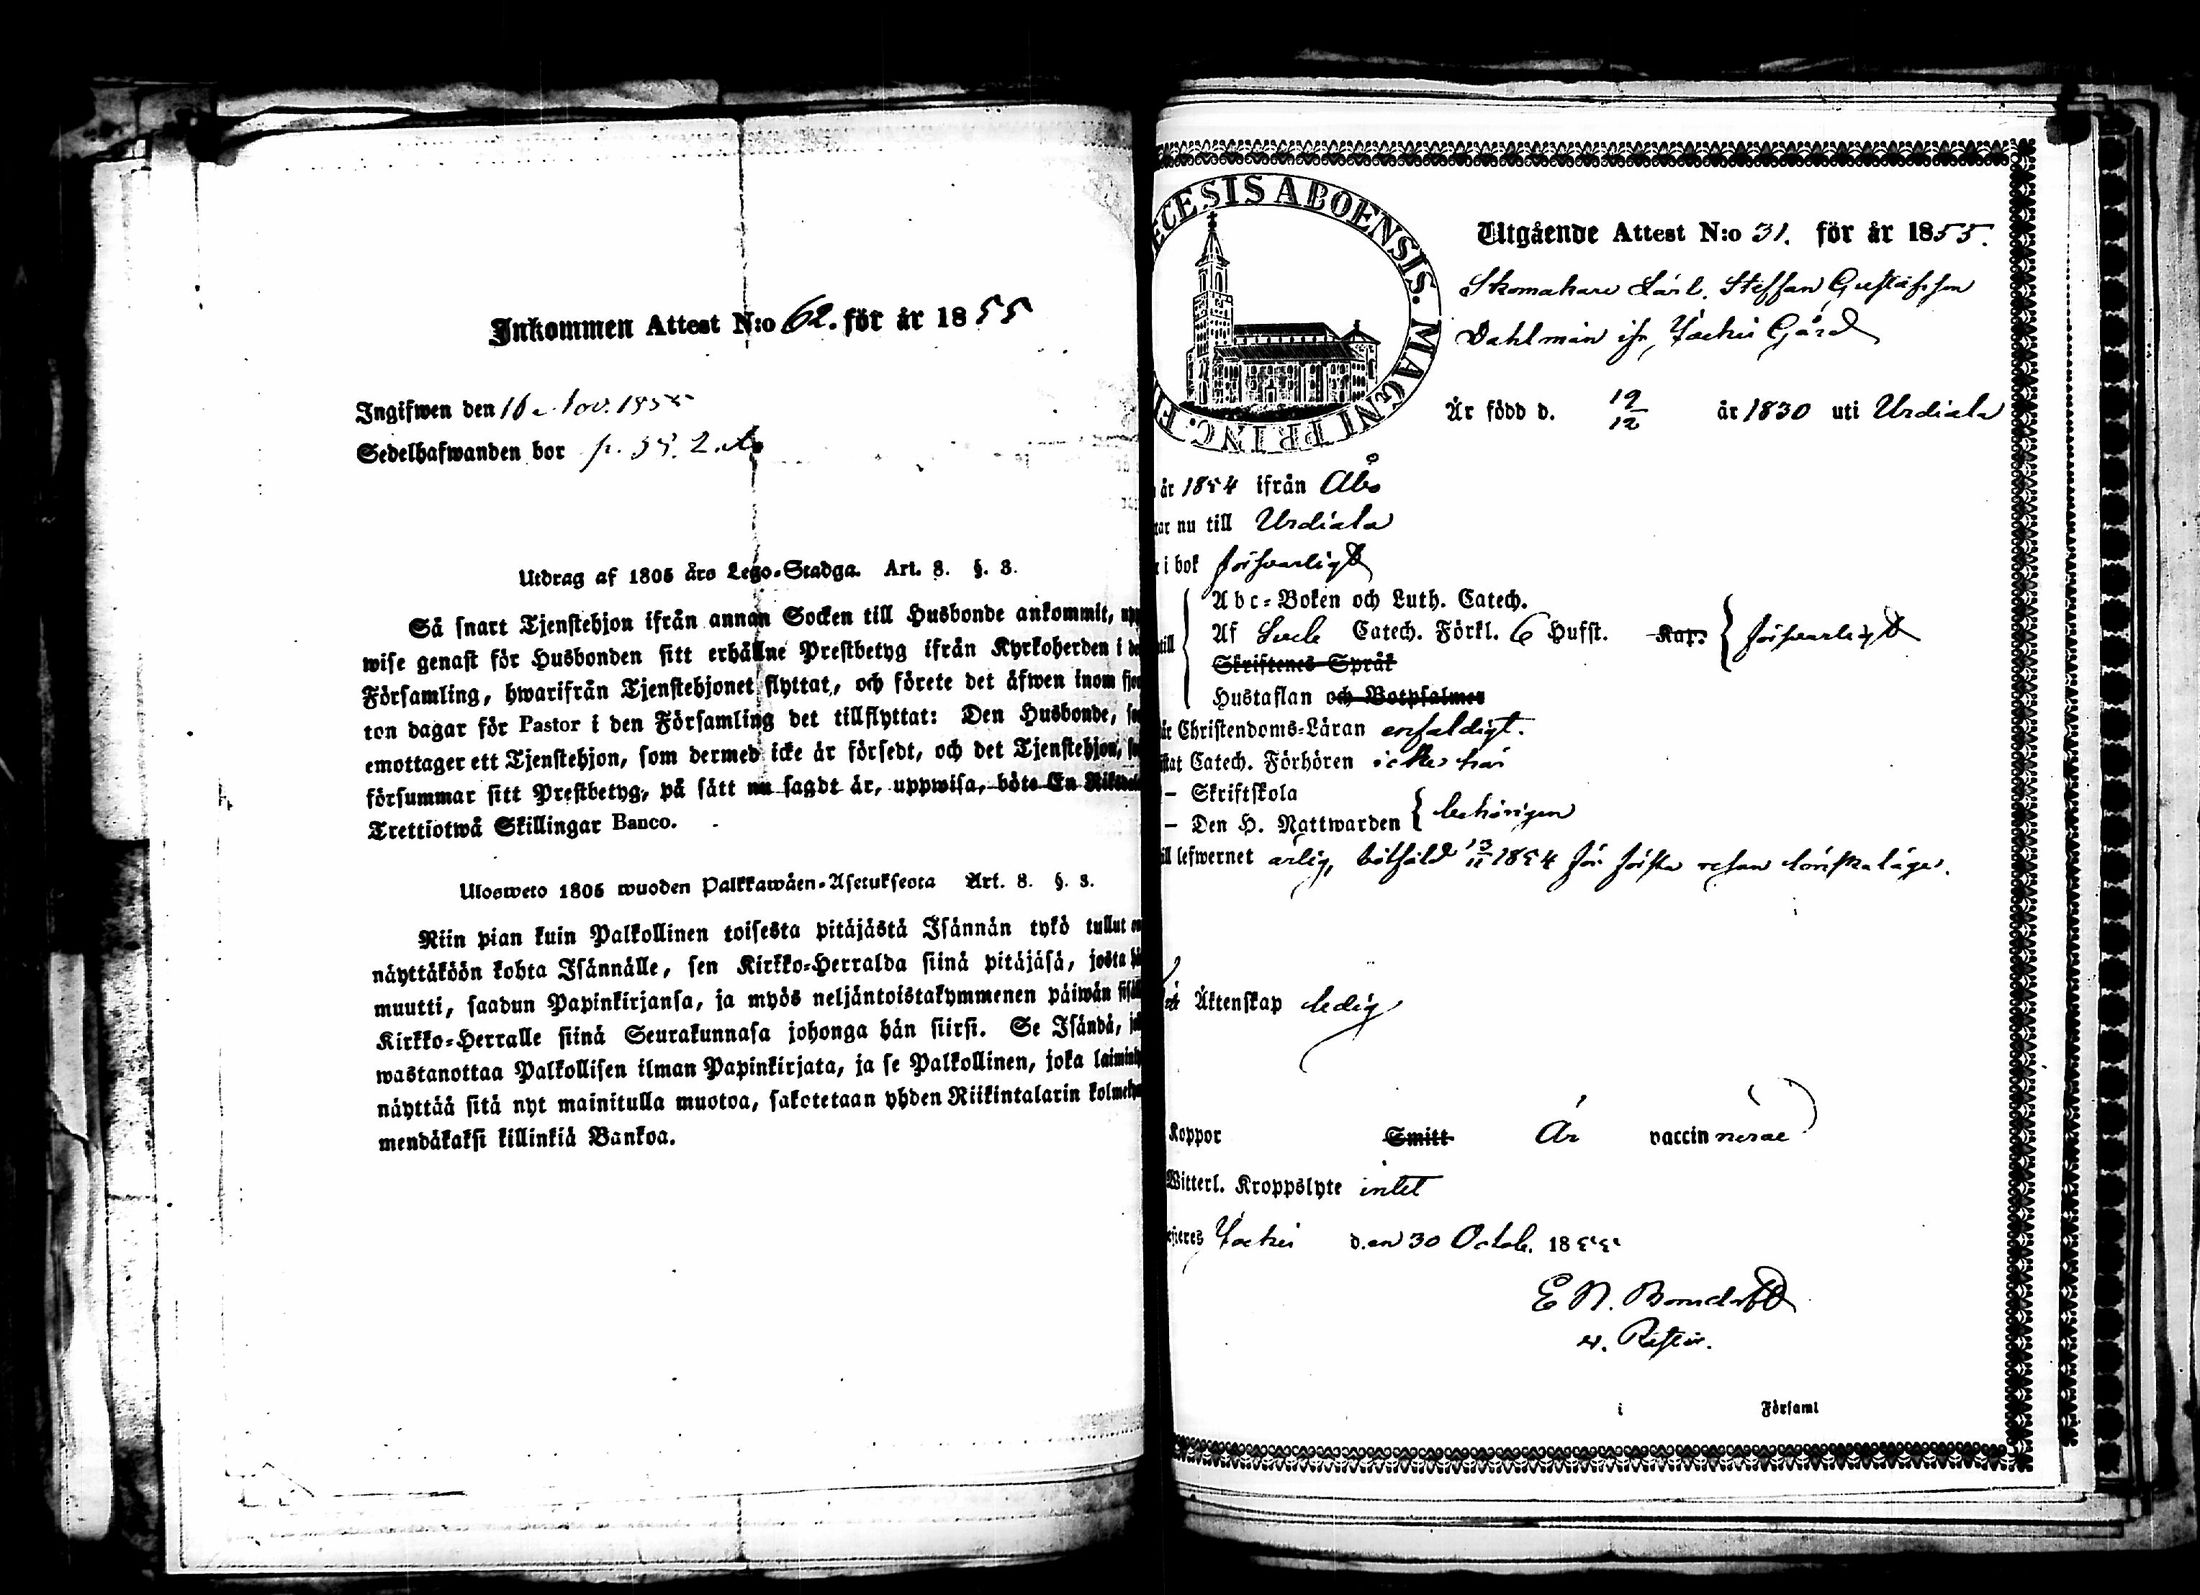 Inkommen Attest N:o 62. för år 1855
Ingifwen den 16 Nov. 1855
Sedelhafwanden bor p. 55.
Utdrag af 1805 års Lego-Stadga. Art. 8. §. 3.
Så snart Tjenstehjon ifrån annan Socken till Husbonde ankommit, upp
wise genast för Husbonden sitt erhållne Prestbetyg ifrån Kyrkoherden i de
Församling, hwarifrån Tjenstehjonet flyttat, och förete det äfwen inom fjor
ton dagar för Pastor i den Församling det tillflyttat: Den Husbonde, so
emottager ett Tjenstehjon, som dermed icke är försedt, och det Tjenstehjon, so
försummar sitt Prestbetyg, på sätt nu sagdt är, uppwisa, böte En Riksdal
Trettiotwå Skillingar Banco.
Ulosweto 1805 wuoden Palkkawäen-Asetuksesta Art. 8. §. 3.
Niin pian kuin Palkollinen toisesta pitäjästä Isännän tykö tullut on
näyttäköön kohta Isännälle, sen Kirkko-Herralda siinä pitäjäsä, josta hä
muutti, saadun Papinkirjansa, ja myös neljäntoistakymmenen päiwän sisäl
Kirkko-Herralle siinä Seurakunnasa johonga hän siirsi. Se Isändä, jo
wastanottaa Palkollisen ilman Papinkirjata, ja se Palkollinen, joka laiminly
näyttää sitä nyt mainitulla muotoa, sakotetaan yhden Riikintalarin kolmeky
mendäkaksi killinkiä Bankoa.
ECESIS ABOENSIS. MAGNI PRINC. FI
Utgående Attest N:o 31. för år 1855.
Skomakare Lärl. Steffan Gustafsson
Dahlman ifr. Jockis Gård
Är född d. 19/12 år 1830 uti Urdiala
år 1854 ifrån Åbo
tar nu till Urdiala
i bok försvarligt
Abc-Boken och Luth. Catech.
till Af Catech. Förkl. 6 Hufst. Kap. försvarligt
Skriftenes Språk
Hustaflan och Botpsalmer
är Christendoms-Läran enfaldigt.
stat Catech. Förhören icke här
– Skriftskola
– Den H. Nattwarden behörigen
ill lefwernet ärlig, bötfäld 13/11 1854 för första resan
Äktenskap ledig
Koppor Smitt Är vaccinerad
Witterl. Kroppslyte intet
Jockis d.en 30 Octob. 1855
E N. Bonsdorff
v. Pastor.
i Församl